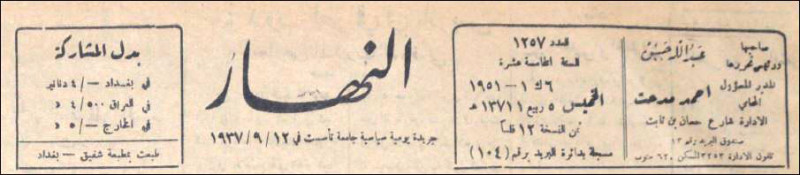 صاحبها
ورئيس تحريرها
عبدالله حسن
المدير المسؤول
المحامي
احمد مدحت
الادارة شارع حسان بن ثابت
صندوق البريد رقم ١٢
تلفون الادارة ٣٢٥٣ السكن ٦٢٠ جنوب
العدد ١٢٥٧
السنة الخامسة عشرة
٦ ك ١ – ١٩٥١
الخميس ٥ ربيع ١ ١٣٧١ هـ
ثمن النسخة ١٢ فلساً
مسجلة بدائرة البريد برقم (١٠٤)
النهار
جريدة يومية سياسية جامعة تأسست في ١٢/٩/١٩٣٧
بدل المشاركة
في بغداد –/٤ دنانير
في العراق ٤/٥٠٠ د
في الخارج –/٥ د
طبعت بمطبعة شفيق – بغداد